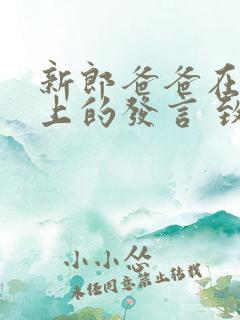 新郎爸爸在
上的發言 致
小小怂
未经同意禁止转载